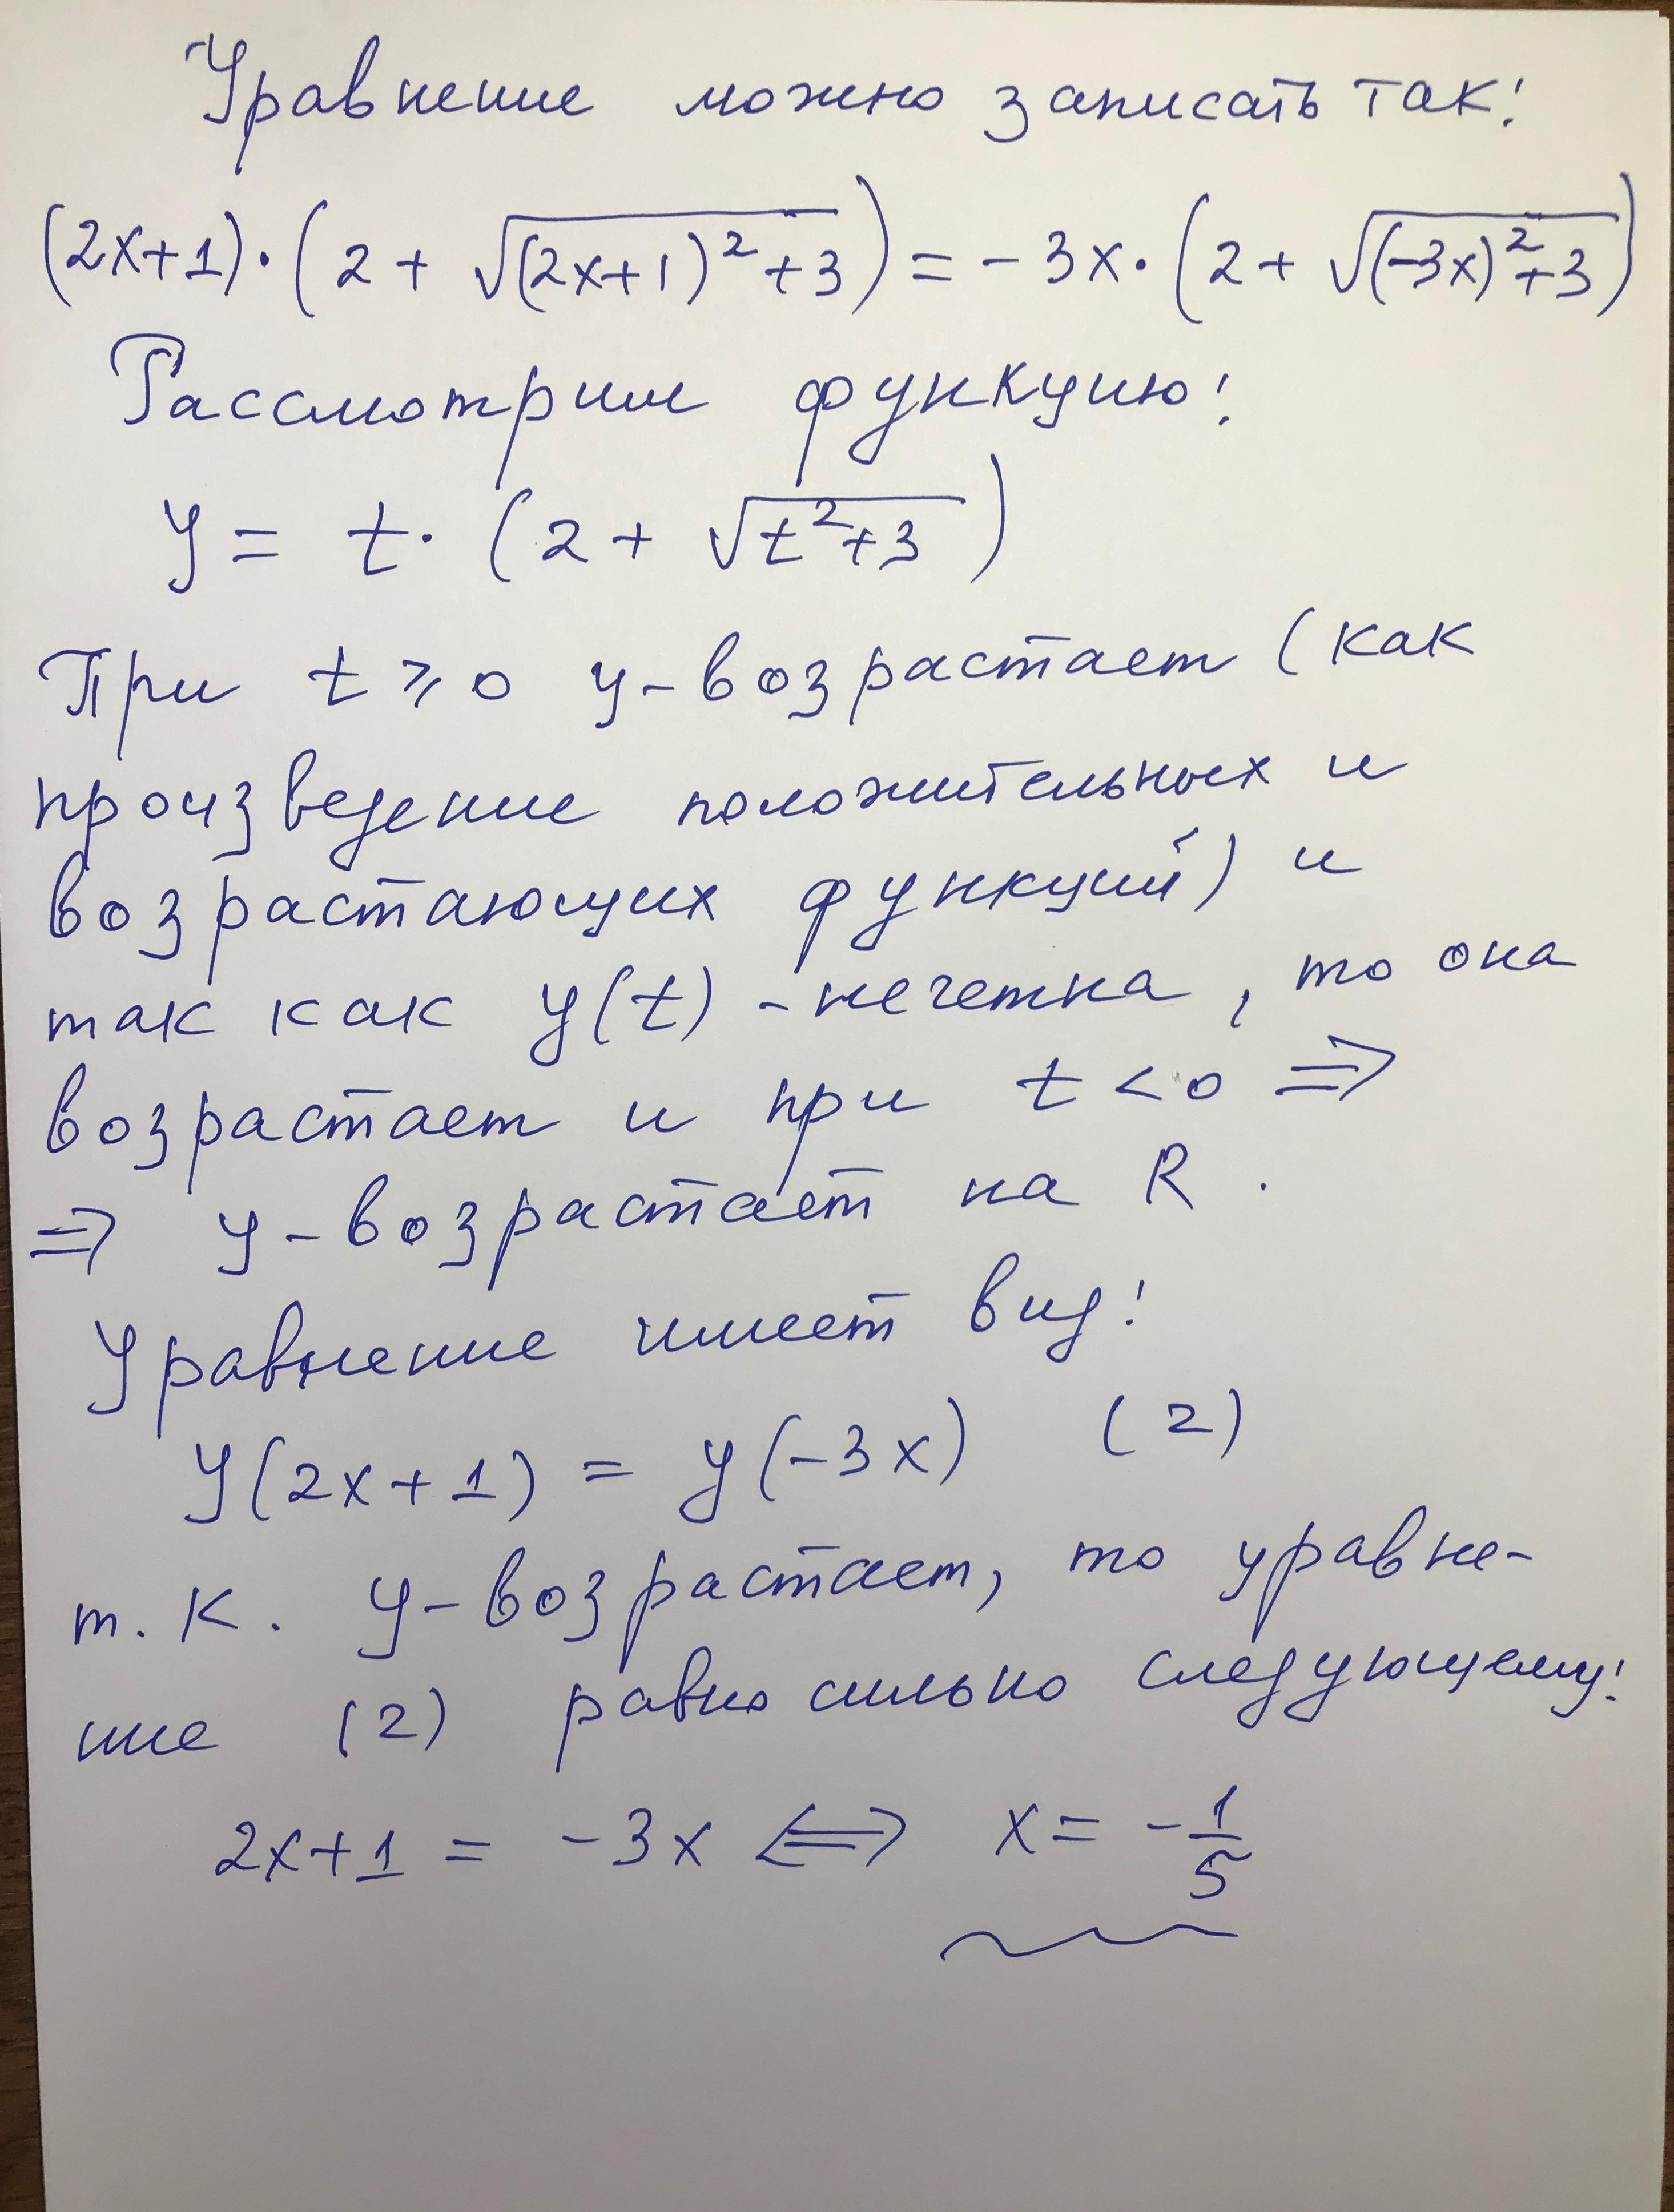 Уравнение можно записать так:
(2x+1)·(2+√((2x+1)²+3))=-3x·(2+√((-3x)²+3))
Рассмотрим функцию:
y = t·(2+√(t²+3))
При t ⩾ 0 y-возрастает (как
произведение положительных и
возрастающих функций) и
так как y(t) - нечетна, то она
возрастает и при t < 0 ⇒
⇒ y-возрастает на R.
Уравнение имеет вид:
y(2x+1) = y(-3x) (2)
т.к. y-возрастает, то уравне-
ние (2) равносильно следующему:
2x+1 = -3x ⟺ x = -1/5